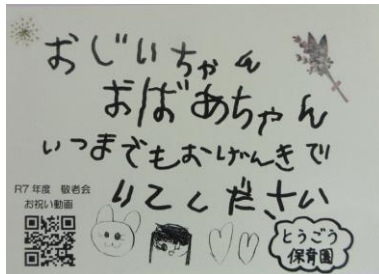 おじいちゃん
おばあちゃん
いつまでもおげんきで
いてください
R7年度 敬老会
お祝い動画
とうごう
保育園